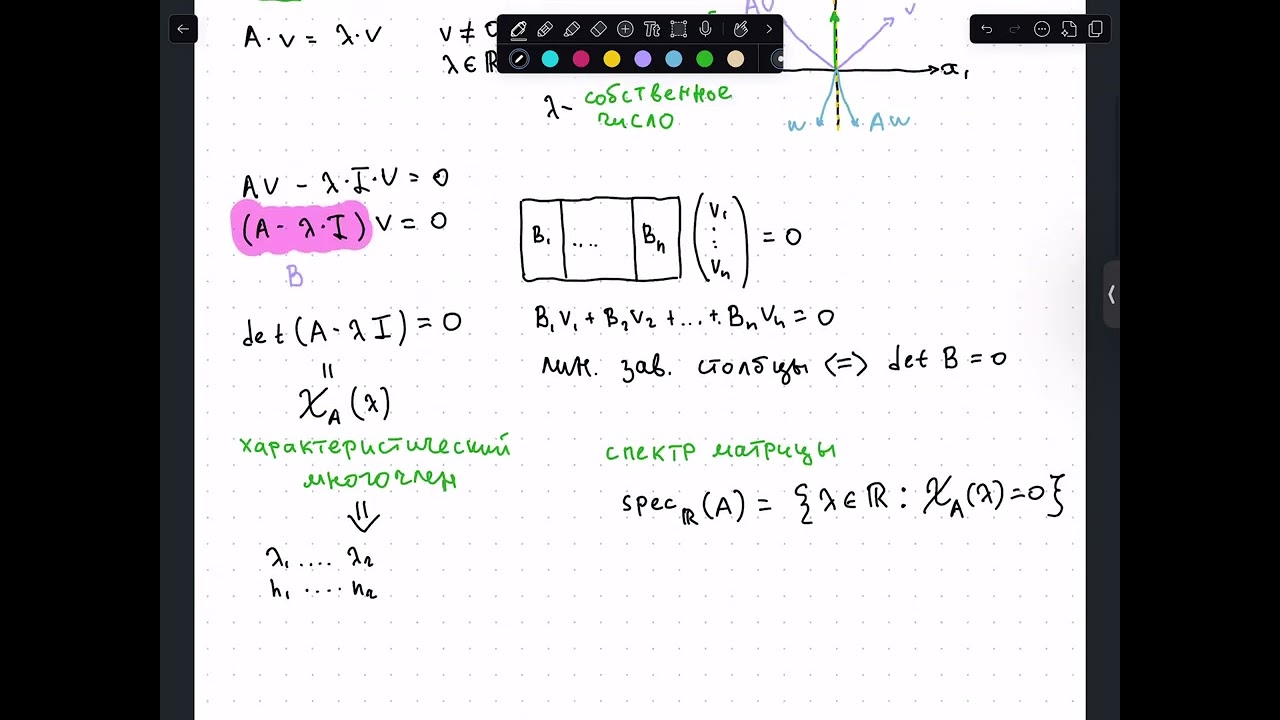 AV
v
A · v = λ · v
v ≠ 0
λ ∈ ℝ
x₁
λ - собственное
число
w
Aw
AV - λ · I · V = 0
(A - λ · I) V = 0
B
B₁ .... Bₙ
V₁
:
Vₙ
= 0
det (A - λ I) = 0
B₁V₁ + B₂V₂ + ... + BₙVₙ = 0
лин. зав. столбцы <=> det B = 0
=
χ_A (λ)
характеристический
многочлен
спектр матрицы
spec_ℝ (A) = { λ ∈ ℝ : χ_A (λ) = 0 }
⇓
λ₁ .... λ₂
n₁ .... n₂